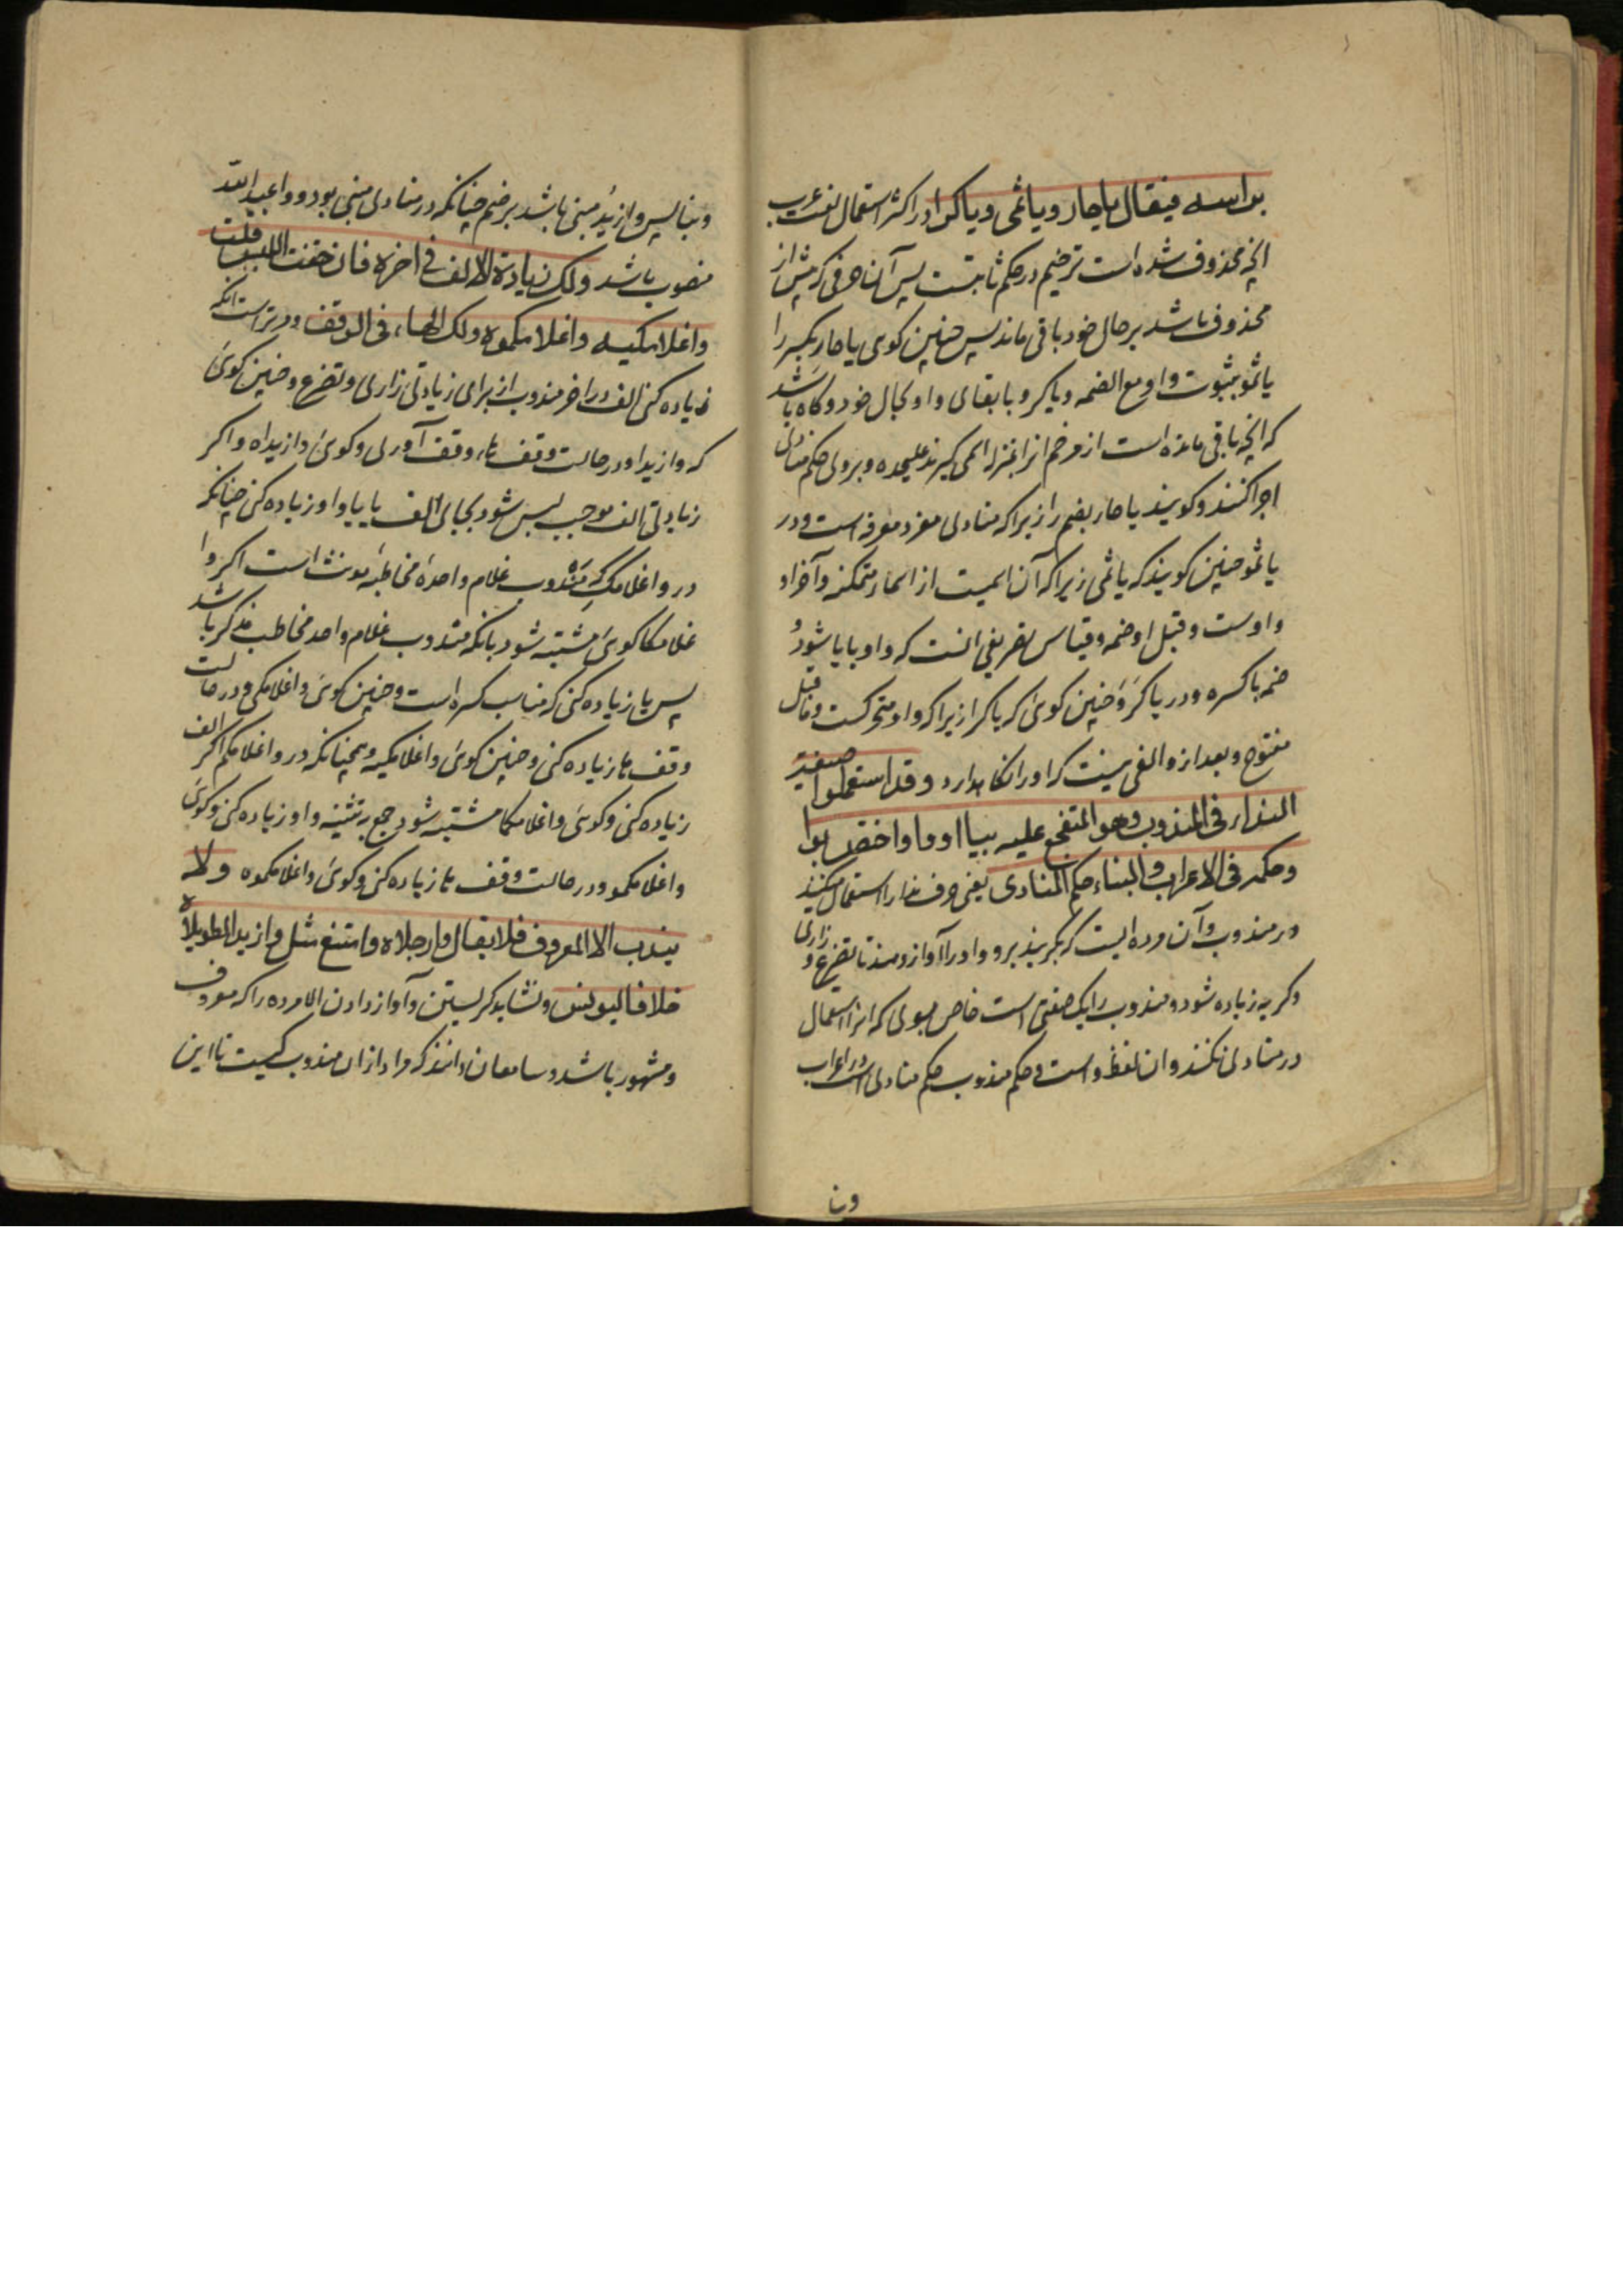 براسه فیقال یا حار ویا ثمی ویا کرا در اکثر استعمال لغت عرب
انچه محذوف شده است ترخیم در حکم ثابتست پس آن حرفی که پیش از
محذوف باشد بر حال خود باقی ماند پس چنین کوی یا حارِ بکسر را
یا ثمو بثبوت واو مع الضمه ویا کرو بابقای واو بحال خود وکاه باشد
که انچه باقی مانده است از مرخم انرا بمنزله اسمی کیرند علیحده وبروی حکم منادی
اجرا کنند وکویند یا حار بضم را زیرا که منادی مفرد معرفه است ودر
یا ثمو چنین کویند که یا ثمی زیرا که آن اسمیست از اسماء متمکنه وآخر او
واوست وقبل او ضمه وقیاس تصریفی انست که واو بایا شود و
ضمه با کسره ودر یا کرَوَ چنین کوی که یا کرا زیرا که واو متحرکست وما قبل
مفتوح وبعد ازو الفی نیست که او را نکاهدارد وقد استعملوا صیغة
النداء فی المندوب وهو المتفجع علیه بیا او وا واختص بوا
وحکمه فی الاعراب والبناء حکم المنادی یعنی حرف ندا را استعمال میکنند
در مندوب وآن مرده ایست که بکریند برو واو را آواز دهند تا تضرع وزاری
وکریه زیاده شود ومندوب را یک صفتی است خاص بوی که انرا استعمال
در منادی نکنند وان لفظ وا است وحکم مندوب حکم منادی است در اعراب
وبنا
وبنا پس وا زیدُ مبنی باشد بر ضم چنانکه در منادی مبنی بود ووا عبد الله
منصوب باشد ولک زیادة الالف فی اخره فان خفت اللبس قلت
واغلامکیه واغلامکموه ولک الهاء فی الوقف ودر تراست انکه
زیاده کنی الف در اخر مندوب از برای زیادتی زاری وتضرع وچنین کوئی
که وازیدا ودر حالت وقف هاء وقف آوری وکوئی وازیداه واکر
زیادتی الف موجب لبس شود بجای الف یا یا واو زیاده کنی چنانکه
در واغلامکِ که مندوب غلام واحدهٔ مخاطبهٔ مونث است اکر وا
غلامکا کوئی مشتبه شود بانکه مندوب غلام واحد مخاطب مذکر باشد
پس یا زیاده کنی که مناسب کسره است وچنین کوئی واغلامکی ودر حالت
وقف ها زیاده کنی وچنین کوئی واغلامکیه وهمچنانکه در واغلامکم اکر الف
زیاده کنی وکوئی واغلامکما مشتبه شود جمع به تثنیه واو زیاده کنی وکوئی
واغلامکمو ودر حالت وقف ها زیاده کنی وکوئی واغلامکموه ولا
یندب الا المعروف فلا یقال وا رجلاه وامتنع مثل وا زید الطویلاه
خلافا لیونس ونشاید کریستن وآواز دادن الا مرده را که معروف
ومشهور باشد وسامعان دانند که مراد ازان مندوب کیست تا این